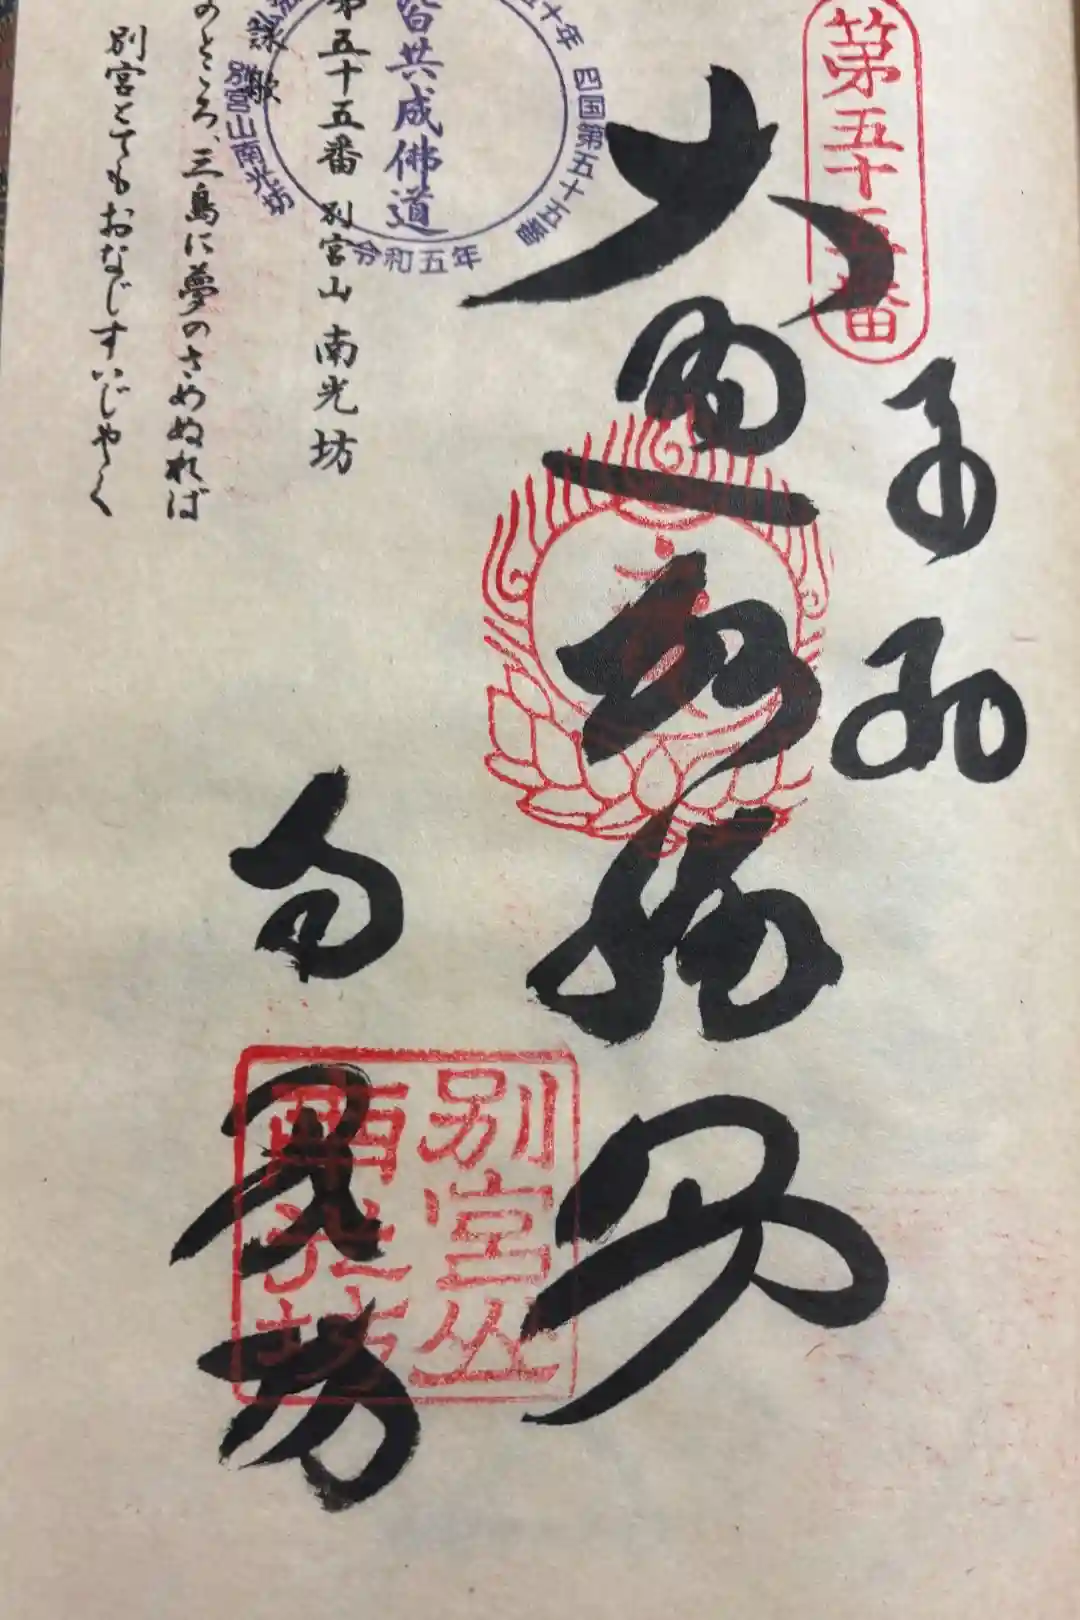 第五十五番
奉納
大通智勝佛
南光坊
別宮山
南光坊
十年 四国第五十五番
令和五年
別宮山南光坊
皆共成佛道
第五十五番 別宮山 南光坊
詠歌
のところ、三島に夢のさめぬれば
別宮とてもおなじすいじゃく